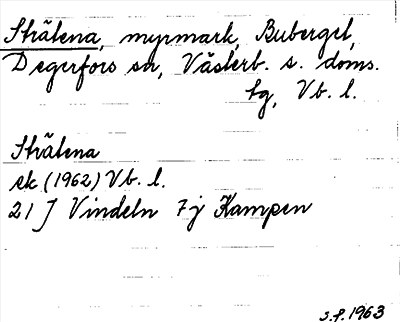 Strätena, myrmark, Buberget,
Degerfors sn, Västerb. s. doms.
tg, Vb. l.
Strätena
ek (1962) Vb. l.
21 J Vindeln 7j Kampen
S.f. 1963